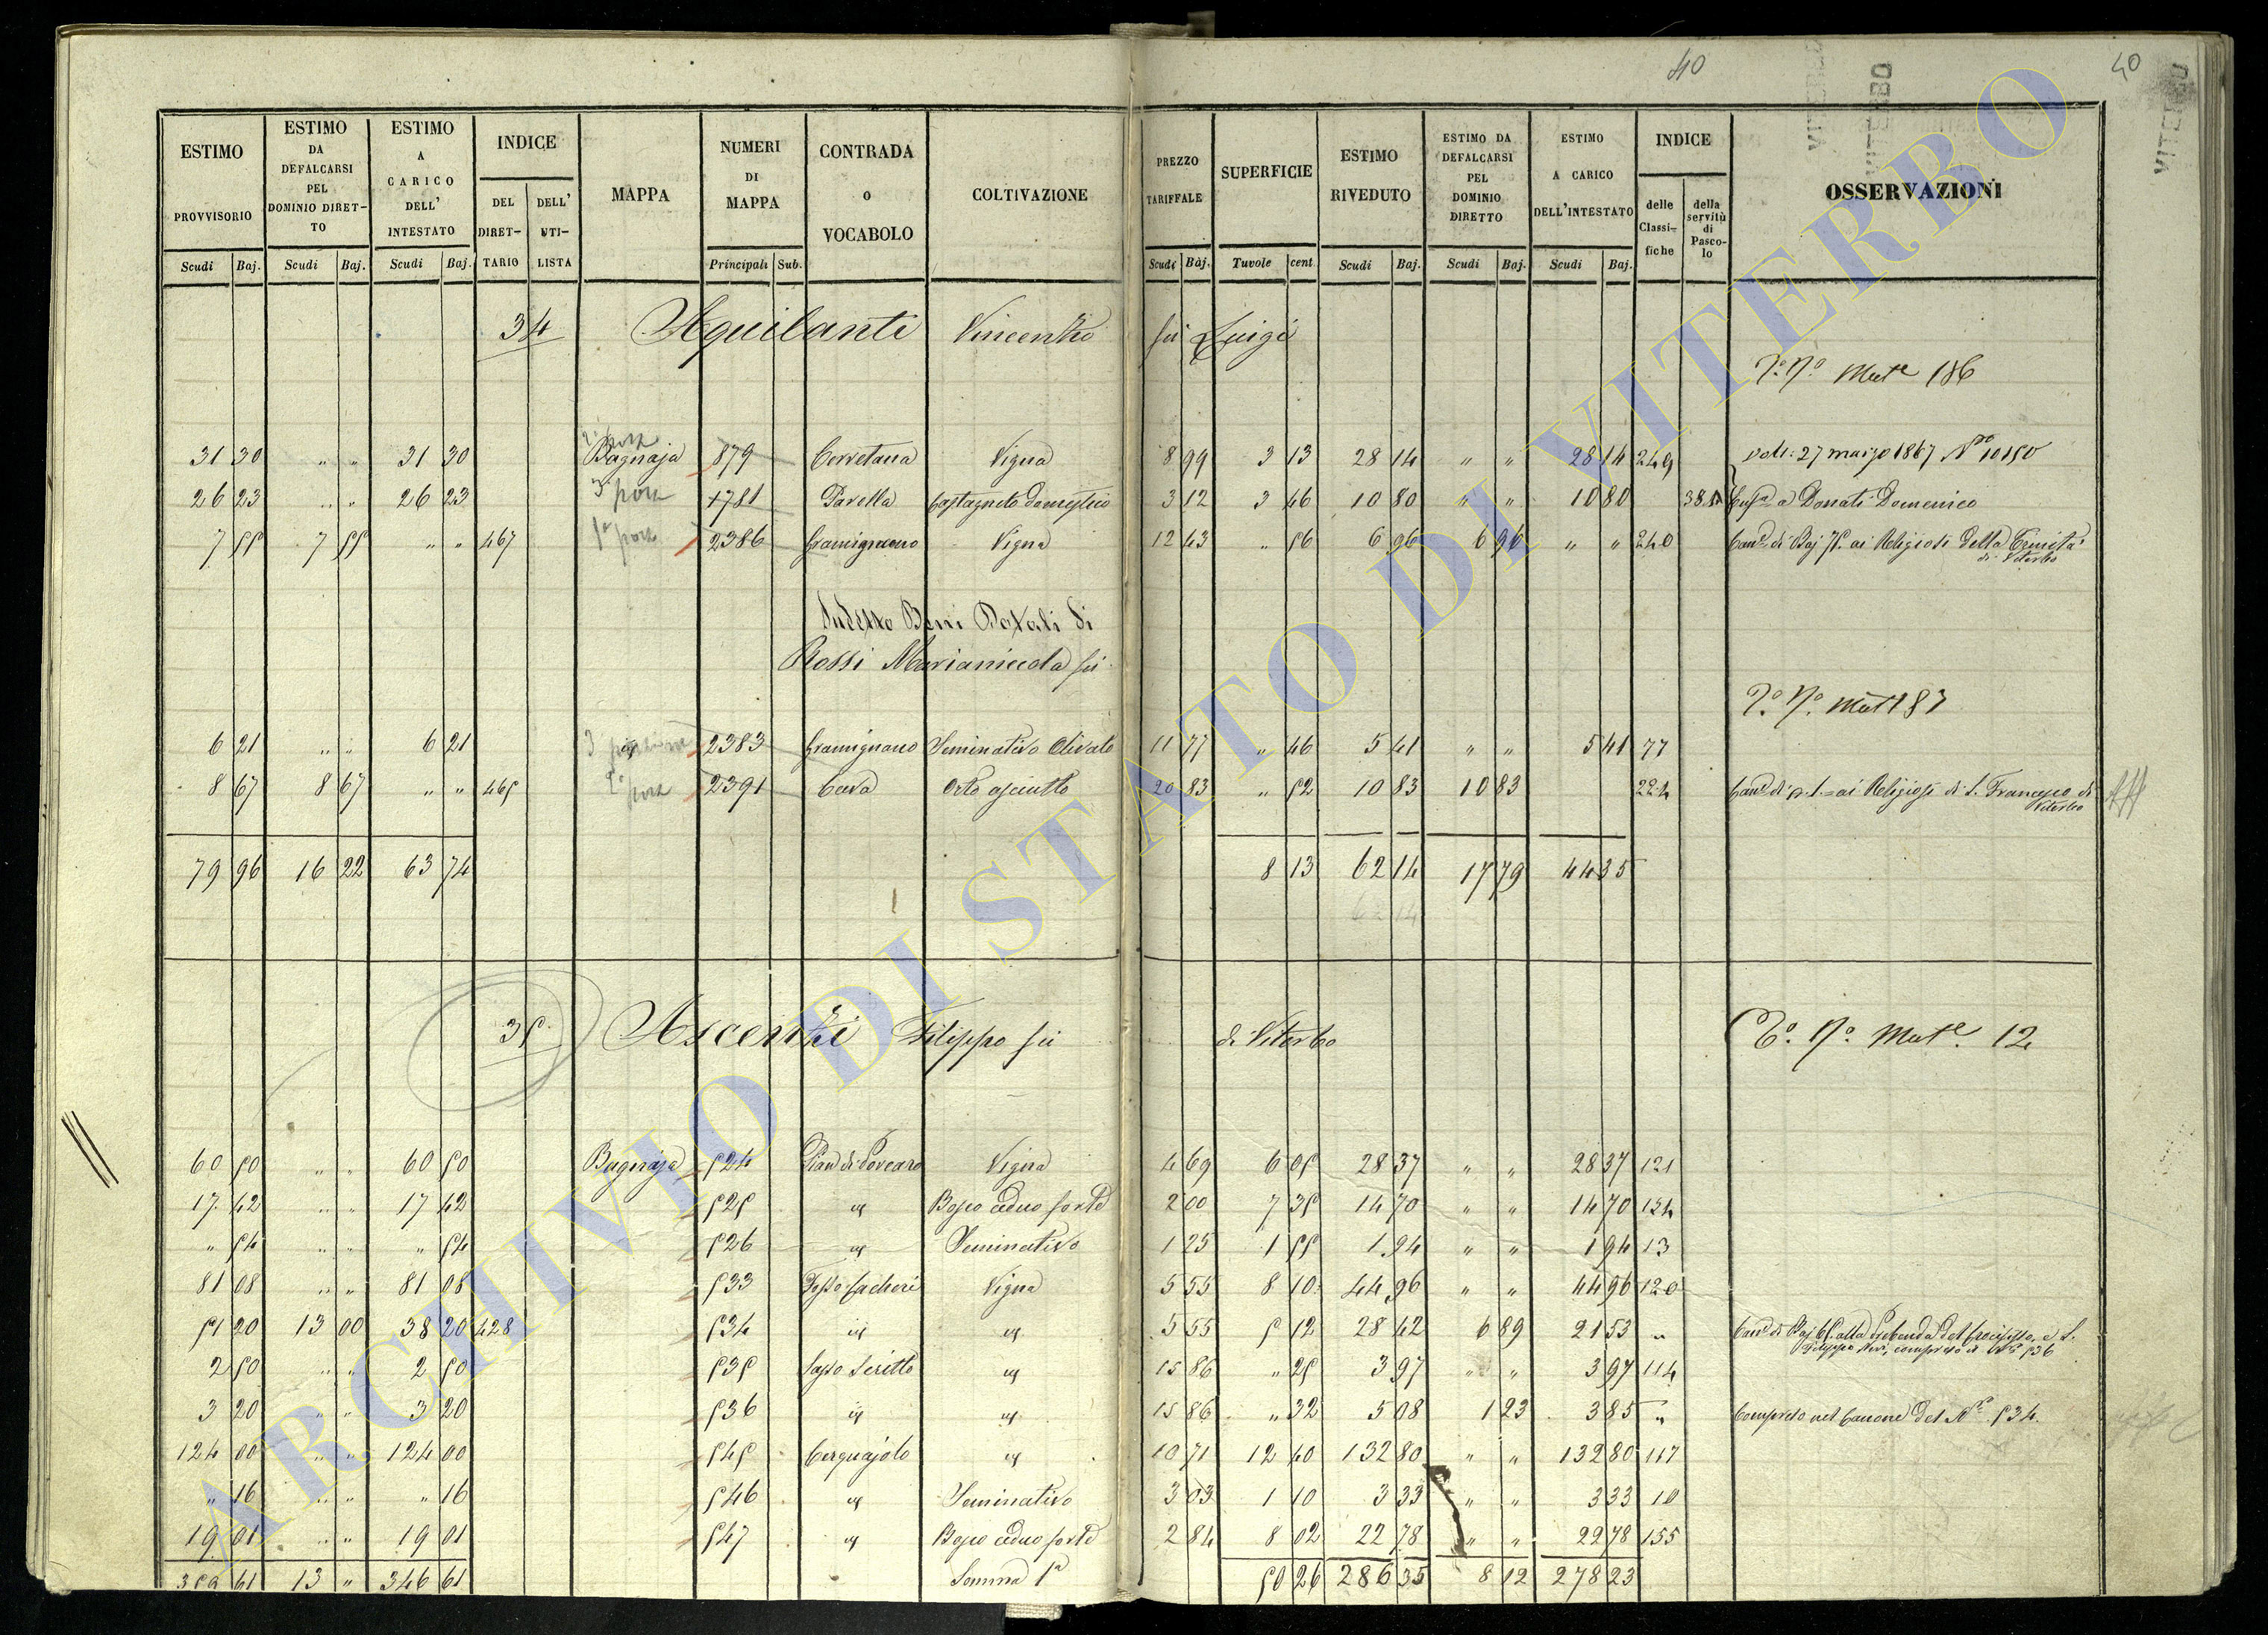 40
40
VITERBO
ESTIMO PROVVISORIO | ESTIMO DA DEFALCARSI PEL DOMINIO DIRETTO | ESTIMO A CARICO DELL' INTESTATO | INDICE DEL DIRETTARIO | DELL' UTILISTA | MAPPA | NUMERI DI MAPPA | CONTRADA O VOCABOLO | COLTIVAZIONE | PREZZO TARIFFALE | SUPERFICIE | ESTIMO RIVEDUTO | ESTIMO DA DEFALCARSI PEL DOMINIO DIRETTO | ESTIMO A CARICO DELL'INTESTATO | INDICE delle Classifiche | della servitù di Pascolo | OSSERVAZIONI
Scudi Baj. | Scudi Baj. | Scudi Baj. | Principali Sub. | Scudi Baj. | Tavole cent. | Scudi Baj. | Scudi Baj. | Scudi Baj.
34 Aquilante Vincenzo fu Luigi
Mut.e 186
31 30 " " 31 30 Bagnaja 879 Cerretana Vigna 8 99 3 13 28 14 " " 28 14 249 27 marzo 1867 N° 10150
26 23 " " 26 23 3 porz 1781 Pavella Castagneto domestico 3 12 3 46 10 80 " " 10 80 a Donati Domenico
7 55 7 55 " " 467 1a porz 2386 Gramignano Vigna 12 43 " 56 6 96 6 96 " " 240 ai Religiosi della Trinità di Viterbo
Sudetto Beni Dotali di
Rossi Marianicola fu
6 21 " " 6 21 2383 Gramignano Seminativo Olivato 11 77 " 46 5 41 " " 5 41 77
8 67 8 67 " " 465 porz 2391 Cava Orto asciutto 20 83 " 52 10 83 10 83 224 ai Religiosi di S. Francesco di Viterbo
79 96 16 22 63 74 8 13 62 14 17 79 44 35
62 14
35 Ascenzi Filippo fu di Viterbo Mut.e 12
60 50 " " 60 50 Bagnaja 524 Pian di Porcaro Vigna 4 69 6 05 28 37 " " 28 37 121
17 42 " " 17 42 525 id Bosco ceduo forte 2 00 7 35 14 70 " " 14 70 154
" 54 " " " 54 526 id Seminativo 1 25 1 55 1 94 " " 1 94 13
81 08 " " 81 08 533 Vigna 5 55 8 10 44 96 " " 44 96 120
51 20 13 00 38 20 428 534 id id 5 55 5 12 28 42 6 89 21 53 "
2 50 " " 2 50 535 Sasso Scritto id 15 86 " 25 3 97 " " 3 97 114
3 20 " " 3 20 536 id id 15 86 " 32 5 08 1 23 3 85 " Compreso nel Canone del N° 534.
124 00 " " 124 00 545 Cerquajolo id 10 71 12 40 132 80 " " 132 80 117
" 16 " " " 16 546 id Seminativo 3 03 1 10 3 33 " " 3 33 10
19 01 " " 19 01 547 id Bosco ceduo forte 2 84 8 02 22 78 " " 22 78 155
359 61 13 " 346 61 Somma 1a 50 26 286 35 8 12 278 23
ARCHIVIO DI STATO DI VITERBO